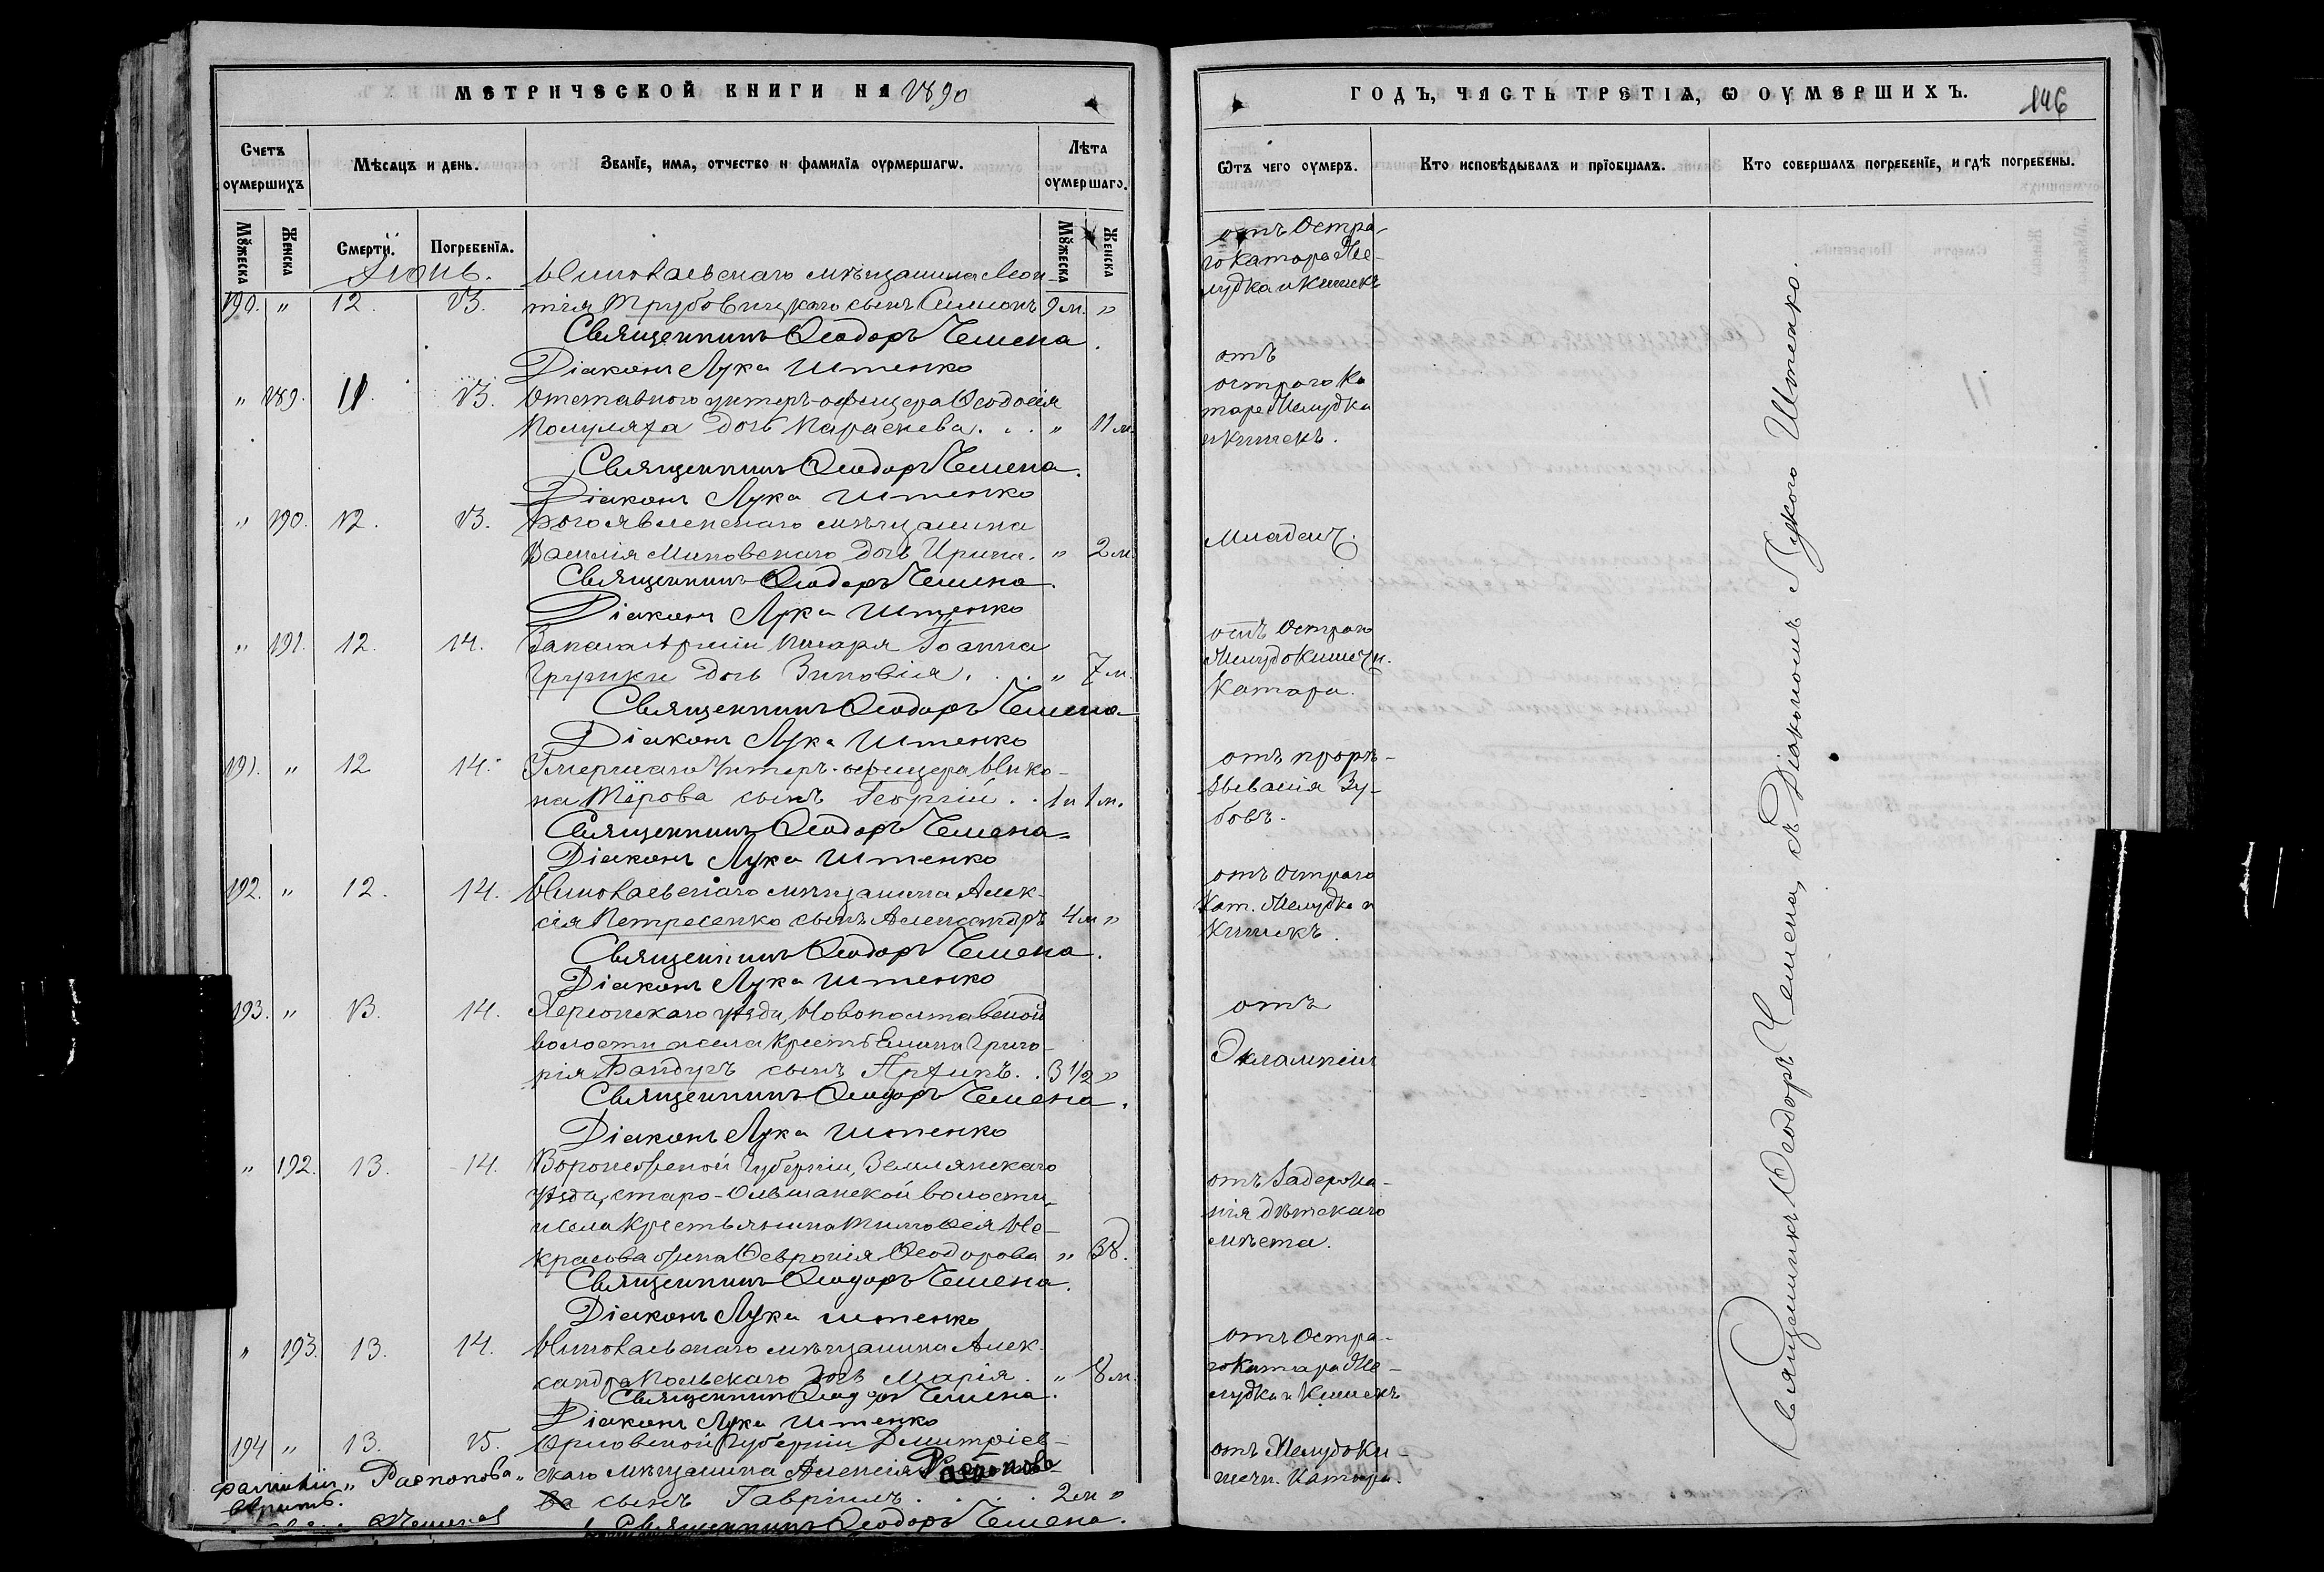 МЕТРИЧЕСКОЙ КНИГИ НА 1890
Счетъ оумершихъ
Мѣсяцъ и день.
Званїе, имя, отчество и фамилїя оурмершагω.
Лѣта оумершаго.
Мꙋжеска
Женска
Смерти.
Погребенїя.
Мꙋжеска
Женска
Іюнь.
Николаевскаго мѣщанина Леон-
190. " 12. 13. тія Трубовицкаго сынъ Симеонъ 9 м. "
Священникъ Ѳеодоръ Чемена.
Діаконъ Лука Штенко
" 189. 11. 13. Отставного унтеръ-офицера Ѳеодосія
дочь Параскева. . . " 11 м.
Священникъ Ѳеодоръ Чемена.
Діаконъ Лука Штенко
" 190. 12. 13. Богоявленскаго мѣщанина
Василія Миновскаго дочь Ирина. " 2 м.
Священникъ Ѳеодоръ Чемена.
Діаконъ Лука Штенко
" 191. 12. 14. писаря Іоанна
дочь Зиновія. . . " 7 м.
Священникъ Ѳеодоръ Чемена
Діаконъ Лука Штенко
191. " 12 14. Умершаго Унтеръ-офицера Нико-
на Тёрова сынъ Георгій . . 1 и 1 м.
Священникъ Ѳеодоръ Чемена
Діаконъ Лука Штенко
192. " 12. 14. Николаевскаго мѣщанина Алек-
сія Петресенко сынъ Александръ 4 м "
Священникъ Ѳеодоръ Чемена.
Діаконъ Лука Штенко
193. " 13. 14. Херсонскаго уѣзда,
волости и села крестьянина Григо-
рія Бандуръ сынъ . . 3 1/2 "
Священникъ Ѳеодоръ Чемена.
Діаконъ Лука Штенко
" 192. 13. 14. Воронежской Губерніи, Землянскаго
уѣзда, Старо-Ольшанской волости
и села крестьянина Тимоѳея Не-
красова жена Ѳевронія Ѳеодорова " 38.
Священникъ Ѳеодоръ Чемена.
Діаконъ Лука Штенко
" 193. 13. 14. Николаевскаго мѣщанина Алек-
сандра Польскаго дочь Марія. " 8 м.
Священникъ Ѳеодоръ Чемена.
Діаконъ Лука Штенко
194 " 13. 15. Орловской Губерніи Димитріев-
скаго мѣщанина Алексія Распопова
сынъ Гавріилъ. . . . . 2 м "
Священникъ Ѳеодоръ Чемена.
фамилій "Распопова"
ГОДЪ, ЧАСТЬ ТРЕТІѦ, Ѡ ОУМЕРШИХЪ.
146
Ѿтъ чего оумеръ.
Кто исповѣдывалъ и прїобщалъ.
Кто совершалъ погребенїе, и гдѣ погребены.
отъ Остра-
го Катара Же-
лудка и Кишекъ
отъ
остраго Ка
тара Желудка
и Кишекъ.
Младенч.
отъ Остраго
Желудокишечн.
Катара.
отъ прорѣ-
зыванія Зу-
бовъ.
отъ Остраго
Кат. Желудка и
Кишекъ.
отъ
Экламксіи
отъ Задержа-
нія дѣтскаго
мѣста.
отъ Остра-
го Катара Же-
лудка и Кишекъ
отъ Желудоки-
шечн. Катара.
Священникъ Ѳеодоръ Чемена, съ Діакономъ Лукою Штенко.